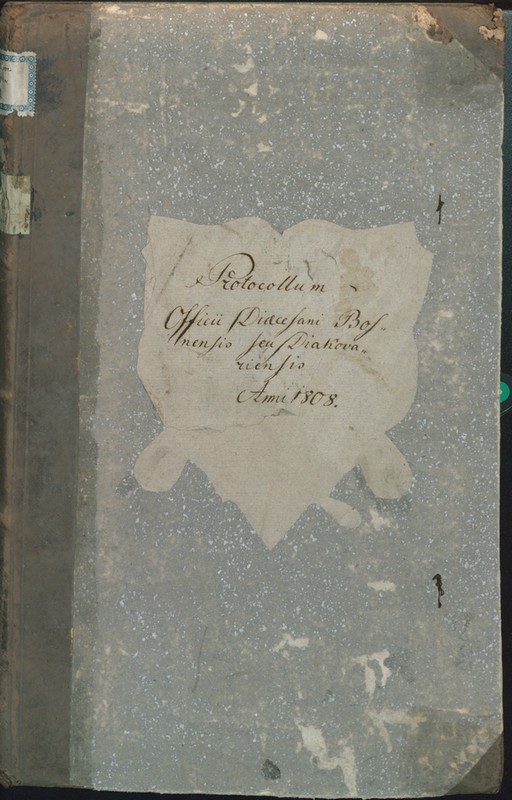 Protocollum
Officii Diœcesani Bos-
nensis seu Diakova-
riensis
Anni 1808.